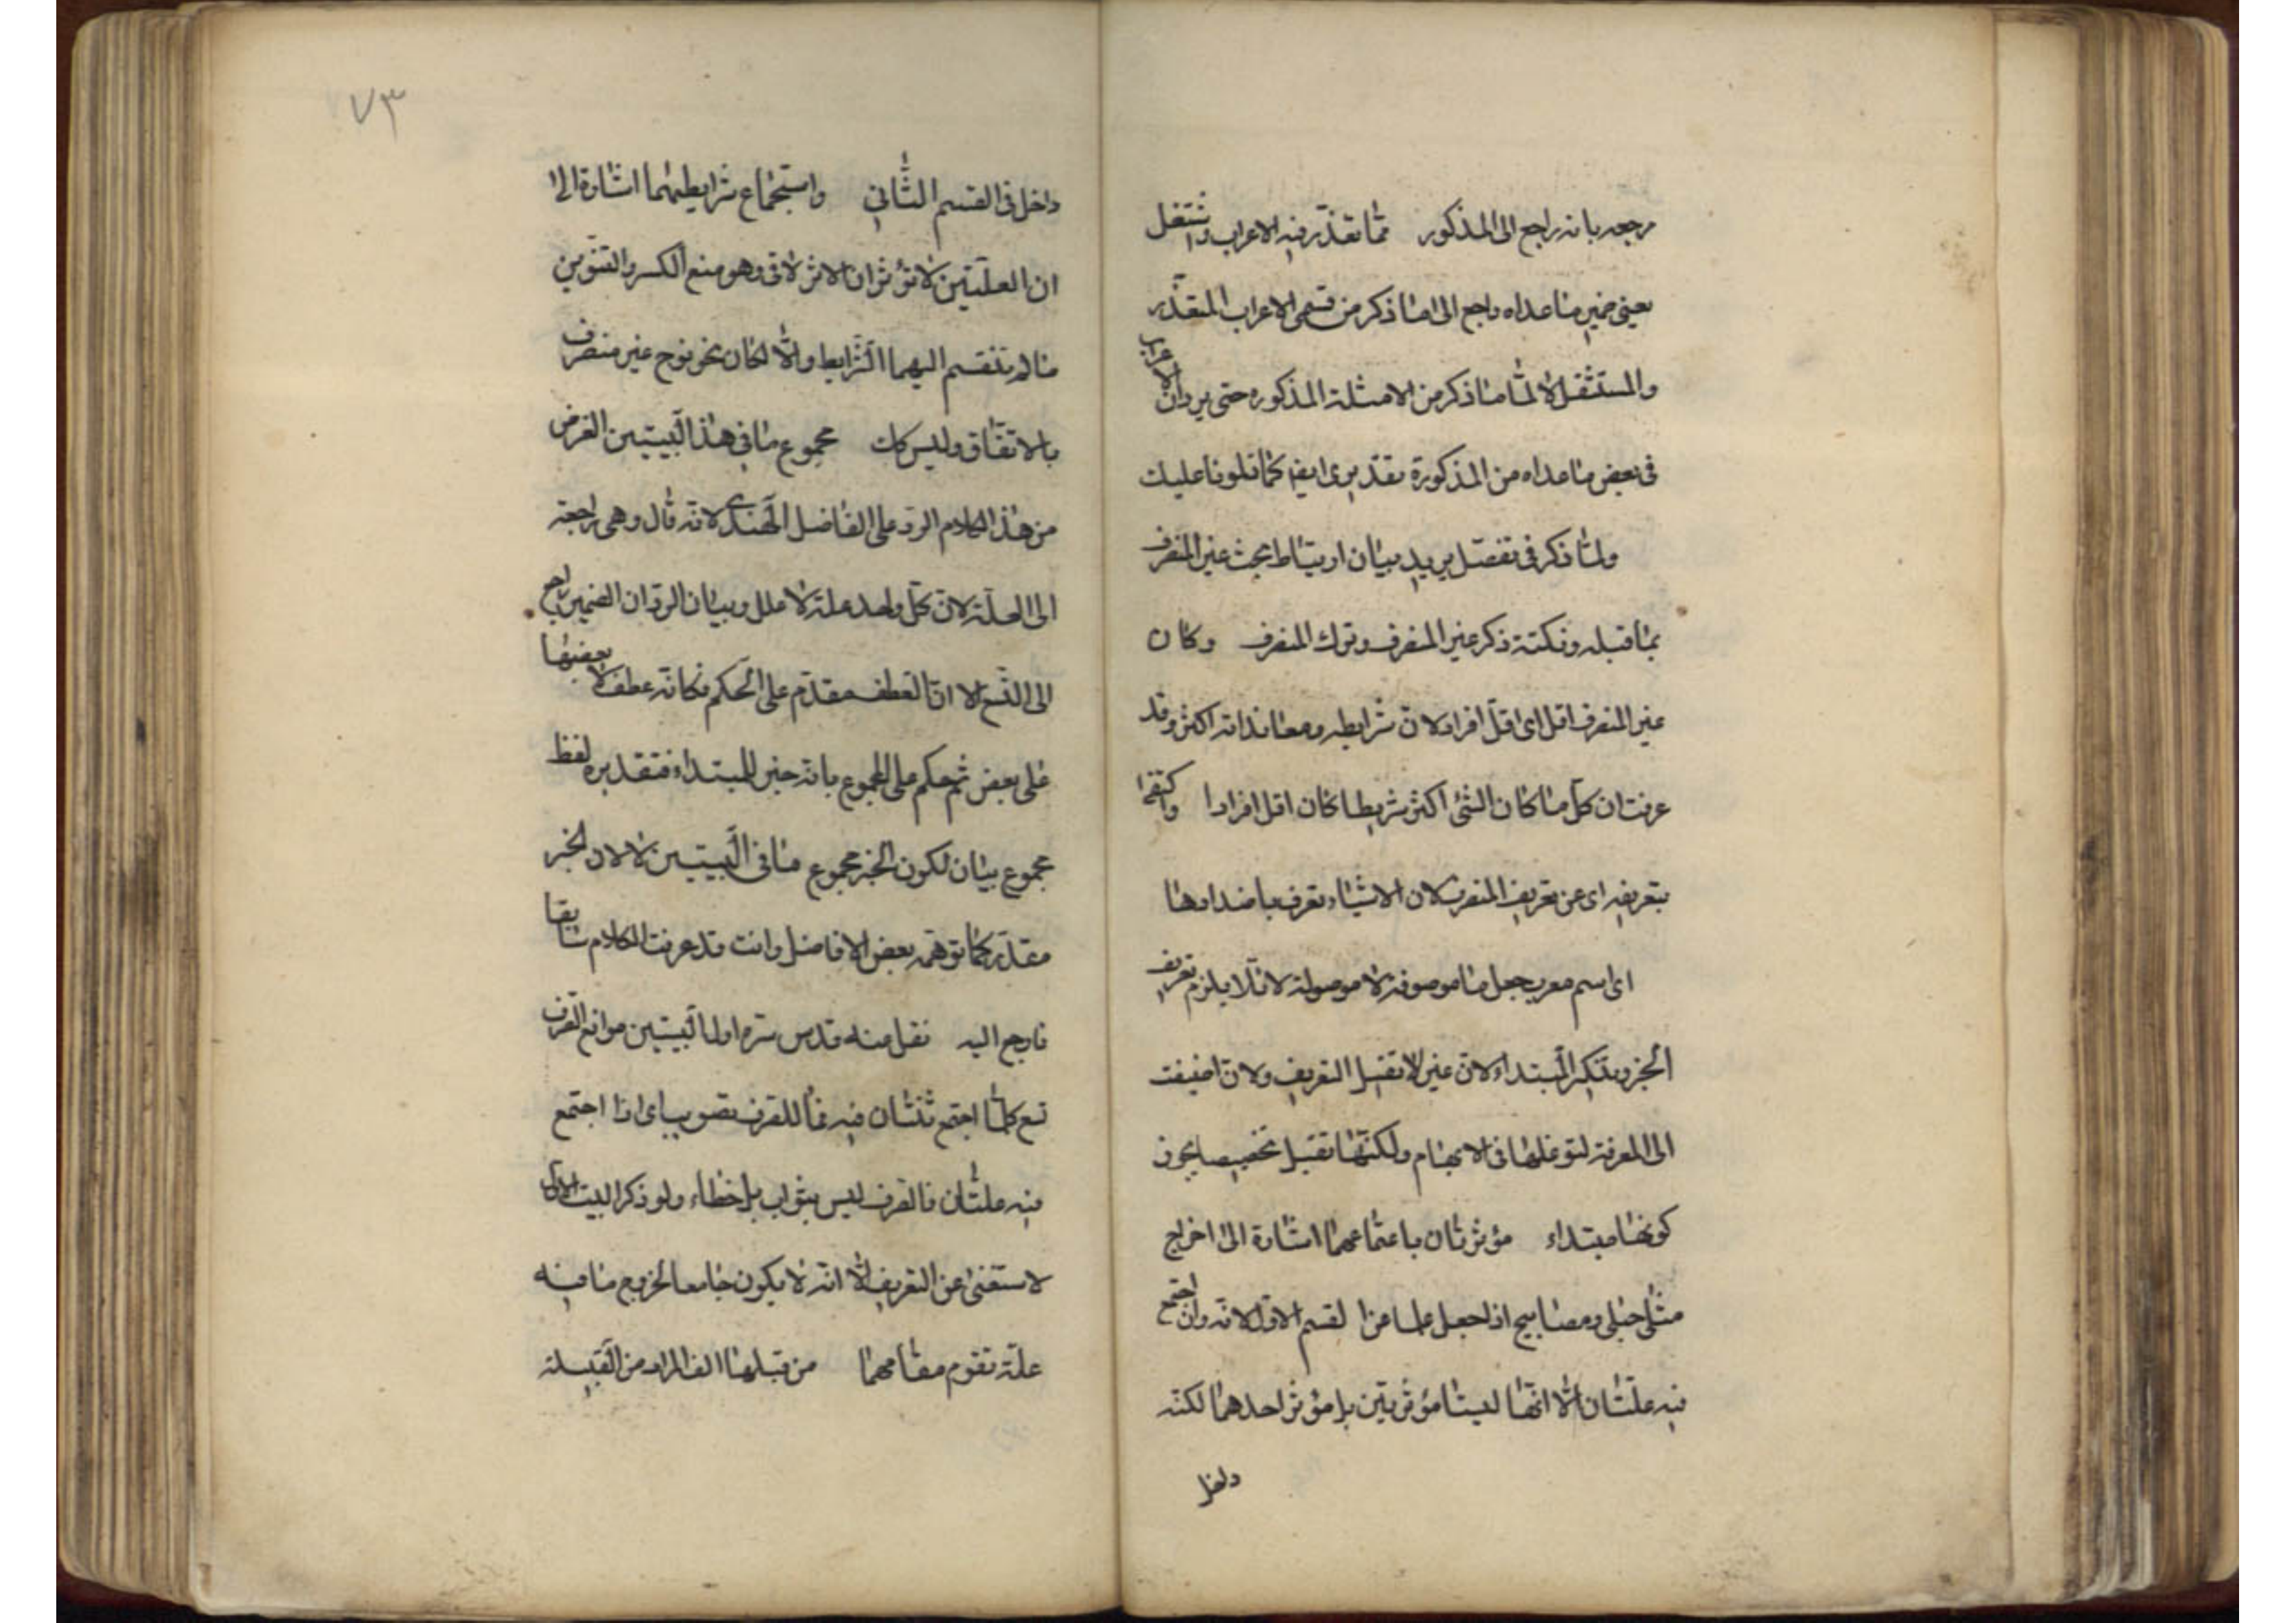 مرجعه بانه راجع الى المذكور مما تقذر فيه الاعراب واستثقل
يعنى ضمير ما عداه راجع الى ما ذكر من قسمى الاعراب المتقذر
والمستثقل لا لما ما ذكر من الامثلة المذكوره حتى يرد ان الاعراب
فى بعض ما عداه من المذكورة تقديرى ايضا كما تلونا عليك
ولما ذكر فى تفصل يريد بيان ارتباط بحث غير المنصرف
بما قبله ونكتة ذكر غير المنصرف وترك المنصرف وكان
غير المنصرف اقل اى اقل افراد لان شرايطه ومعانداته اكثر وقد
عرفت ان كل ما كان الشئ اكثر شريطا كان اقل افرادا واكتفى
بتعريفه اى عن تعريف المنصرف لان الاشياء تعرف باضدادها
اى اسم معرب جعل ما موصوفة لا موصولة لانه لا يلزم تعريف
الخبر وتنكير المبتداء لان غير لا تقبل التعريف ولان اضيفت
الى المعرفة لتوغلها فى الابهام ولكنها تقبل تخصيصا يجوز
كونها مبتداء مؤثرتان باجتماعهما اشارة الى اخراج
مثل حبلى ومصابيح اذا جعل علما عن القسم الاول لانه وان اجتمع
فيه علتان الا انها ليستا مؤثرتين بل مؤثر احدهما لكنه
داخل
٧٣
داخل فى القسم الثانى واستجماع شرايطهما اشارة الى
ان العلتين لا تؤثران الاثر الاتى وهو منع الكسر والتنوين
ما لم تنقسم اليهما الشرايط والا لكان نحو نوح غير منصرف
بالاتفاق وليس كك مجموع ما فى هذا البيتين الغرض
من هذا الكلام الرد على الفاضل الهندى لانه قال وهى راجعة
الى العلة لان كل واحد علة لا علل وبيان الرد ان الضمير راجع
الى التسع الا ان العطف مقدم على الحكم فكانه عطف بعضها
على بعض ثم حكم على المجموع بانه خبر للمبتداء فتقديره لفظ
مجموع بيان لكون الخبر مجموع ما فى البيتين لا لان الخبر
مقدر كما توهمه بعض الافاضل وانت قد عرفت الكلام سابقا
فارجع اليه نقل عنه قدس سره اول البيتين موانع الصرف
تسع كلما اجتمع ثنتان فيه فما للصرف تصويب اى اذا اجتمع
فيه علتان فالصرف ليس بثواب بل خطاء ولو ذكر البيت الاول
لاستغنى عن التعريف الا انه لا يكون جامعا لخروج ما فيه
علة تقوم مقامهما من قبلها الف المراد من القبيلة